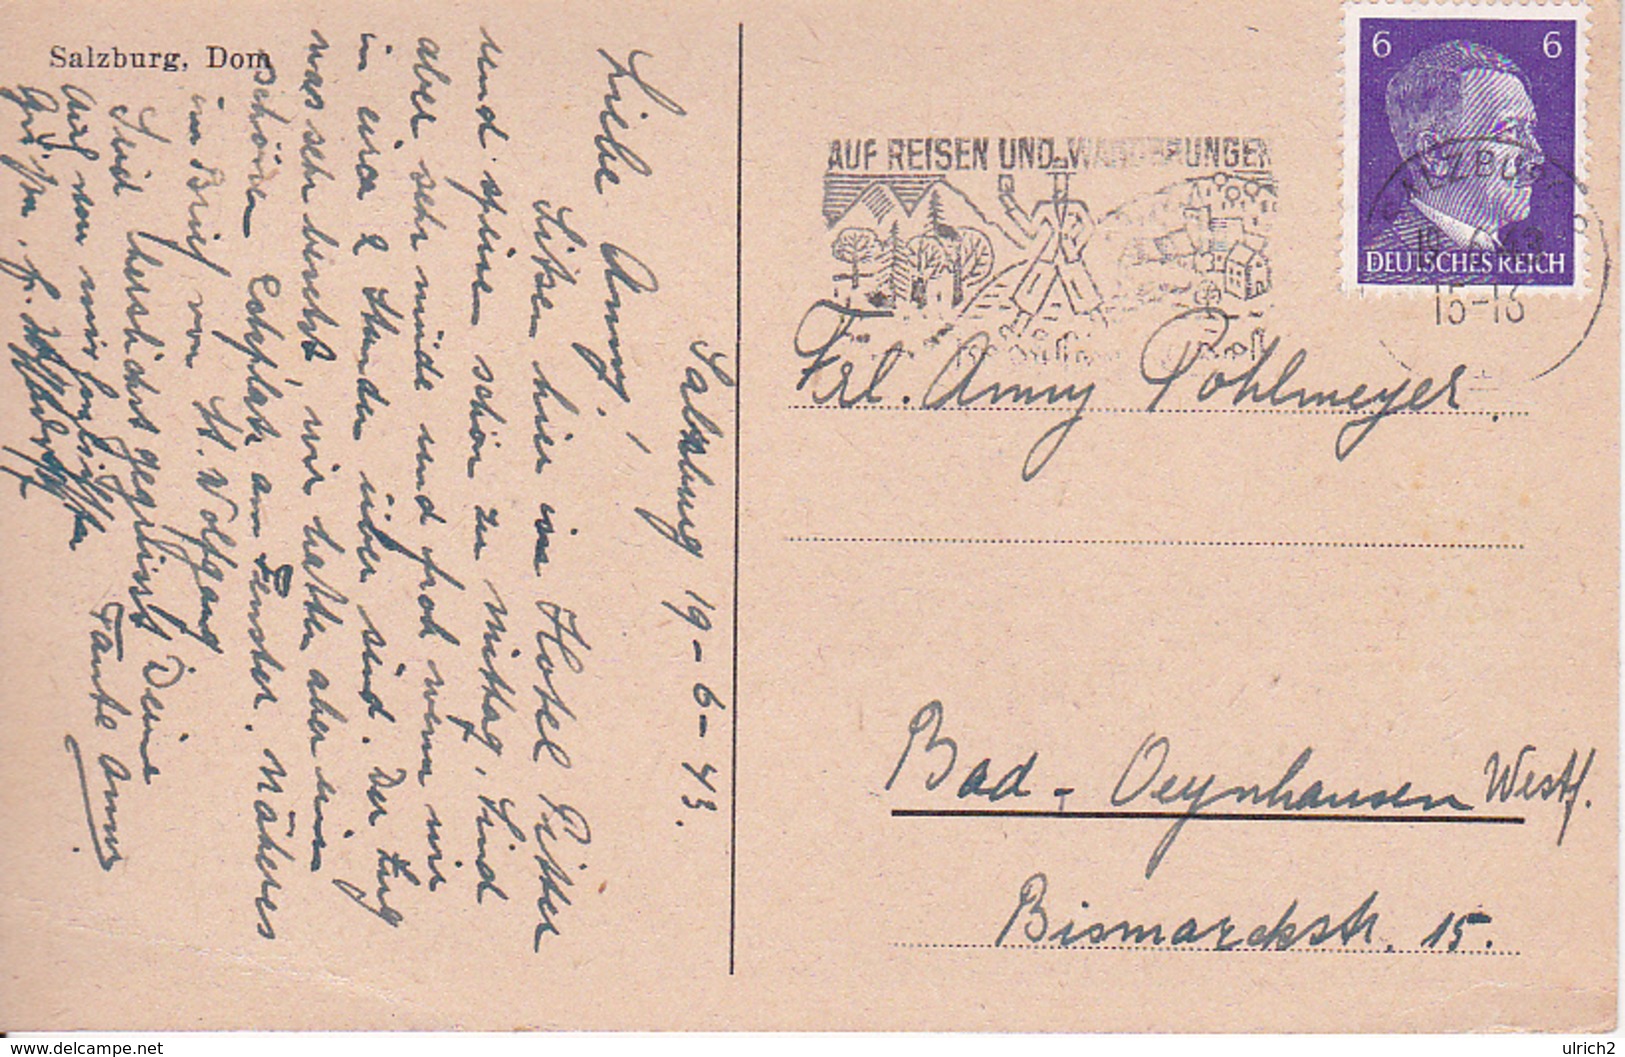 Salzburg, Dom
Salzburg 19-6-43.
Liebe Anny!
Sitzen hier im Hotel Pitter
und speisen schön zu Mittag. Sind
aber sehr müde und froh wenn wir
in circa 2 Stunden über sind. Der Zug
war sehr besetzt, wir hatten aber einen
schönen Eckplatz am Fenster. Näheres
im Brief von St. Wolfgang
Seid herzlichst gegrüsst Deine
Tante Anny
Auch von mir herzlichste
Grüße, Fr.
AUF REISEN UND WANDERUNGEN
6 6
DEUTSCHES REICH
SALZBURG
19.6.43
15-16
Frl. Anny Pohlmeyer.
Bad-Oeynhausen Westf.
Bismarckstr. 15.
delcampe.net
ulrich2